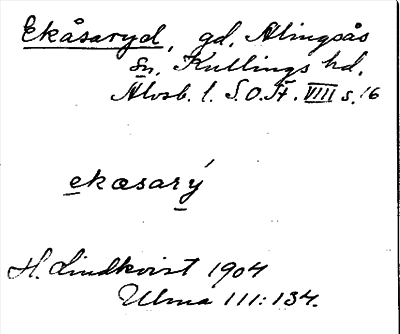 Ekåsaryd, gd, Alingsås
sn, Kullings hd,
Älvsb. l. S.O.Ä. VIII s. 16
ekæsarý
H. Lindkvist 1904
Ulma 111:134.